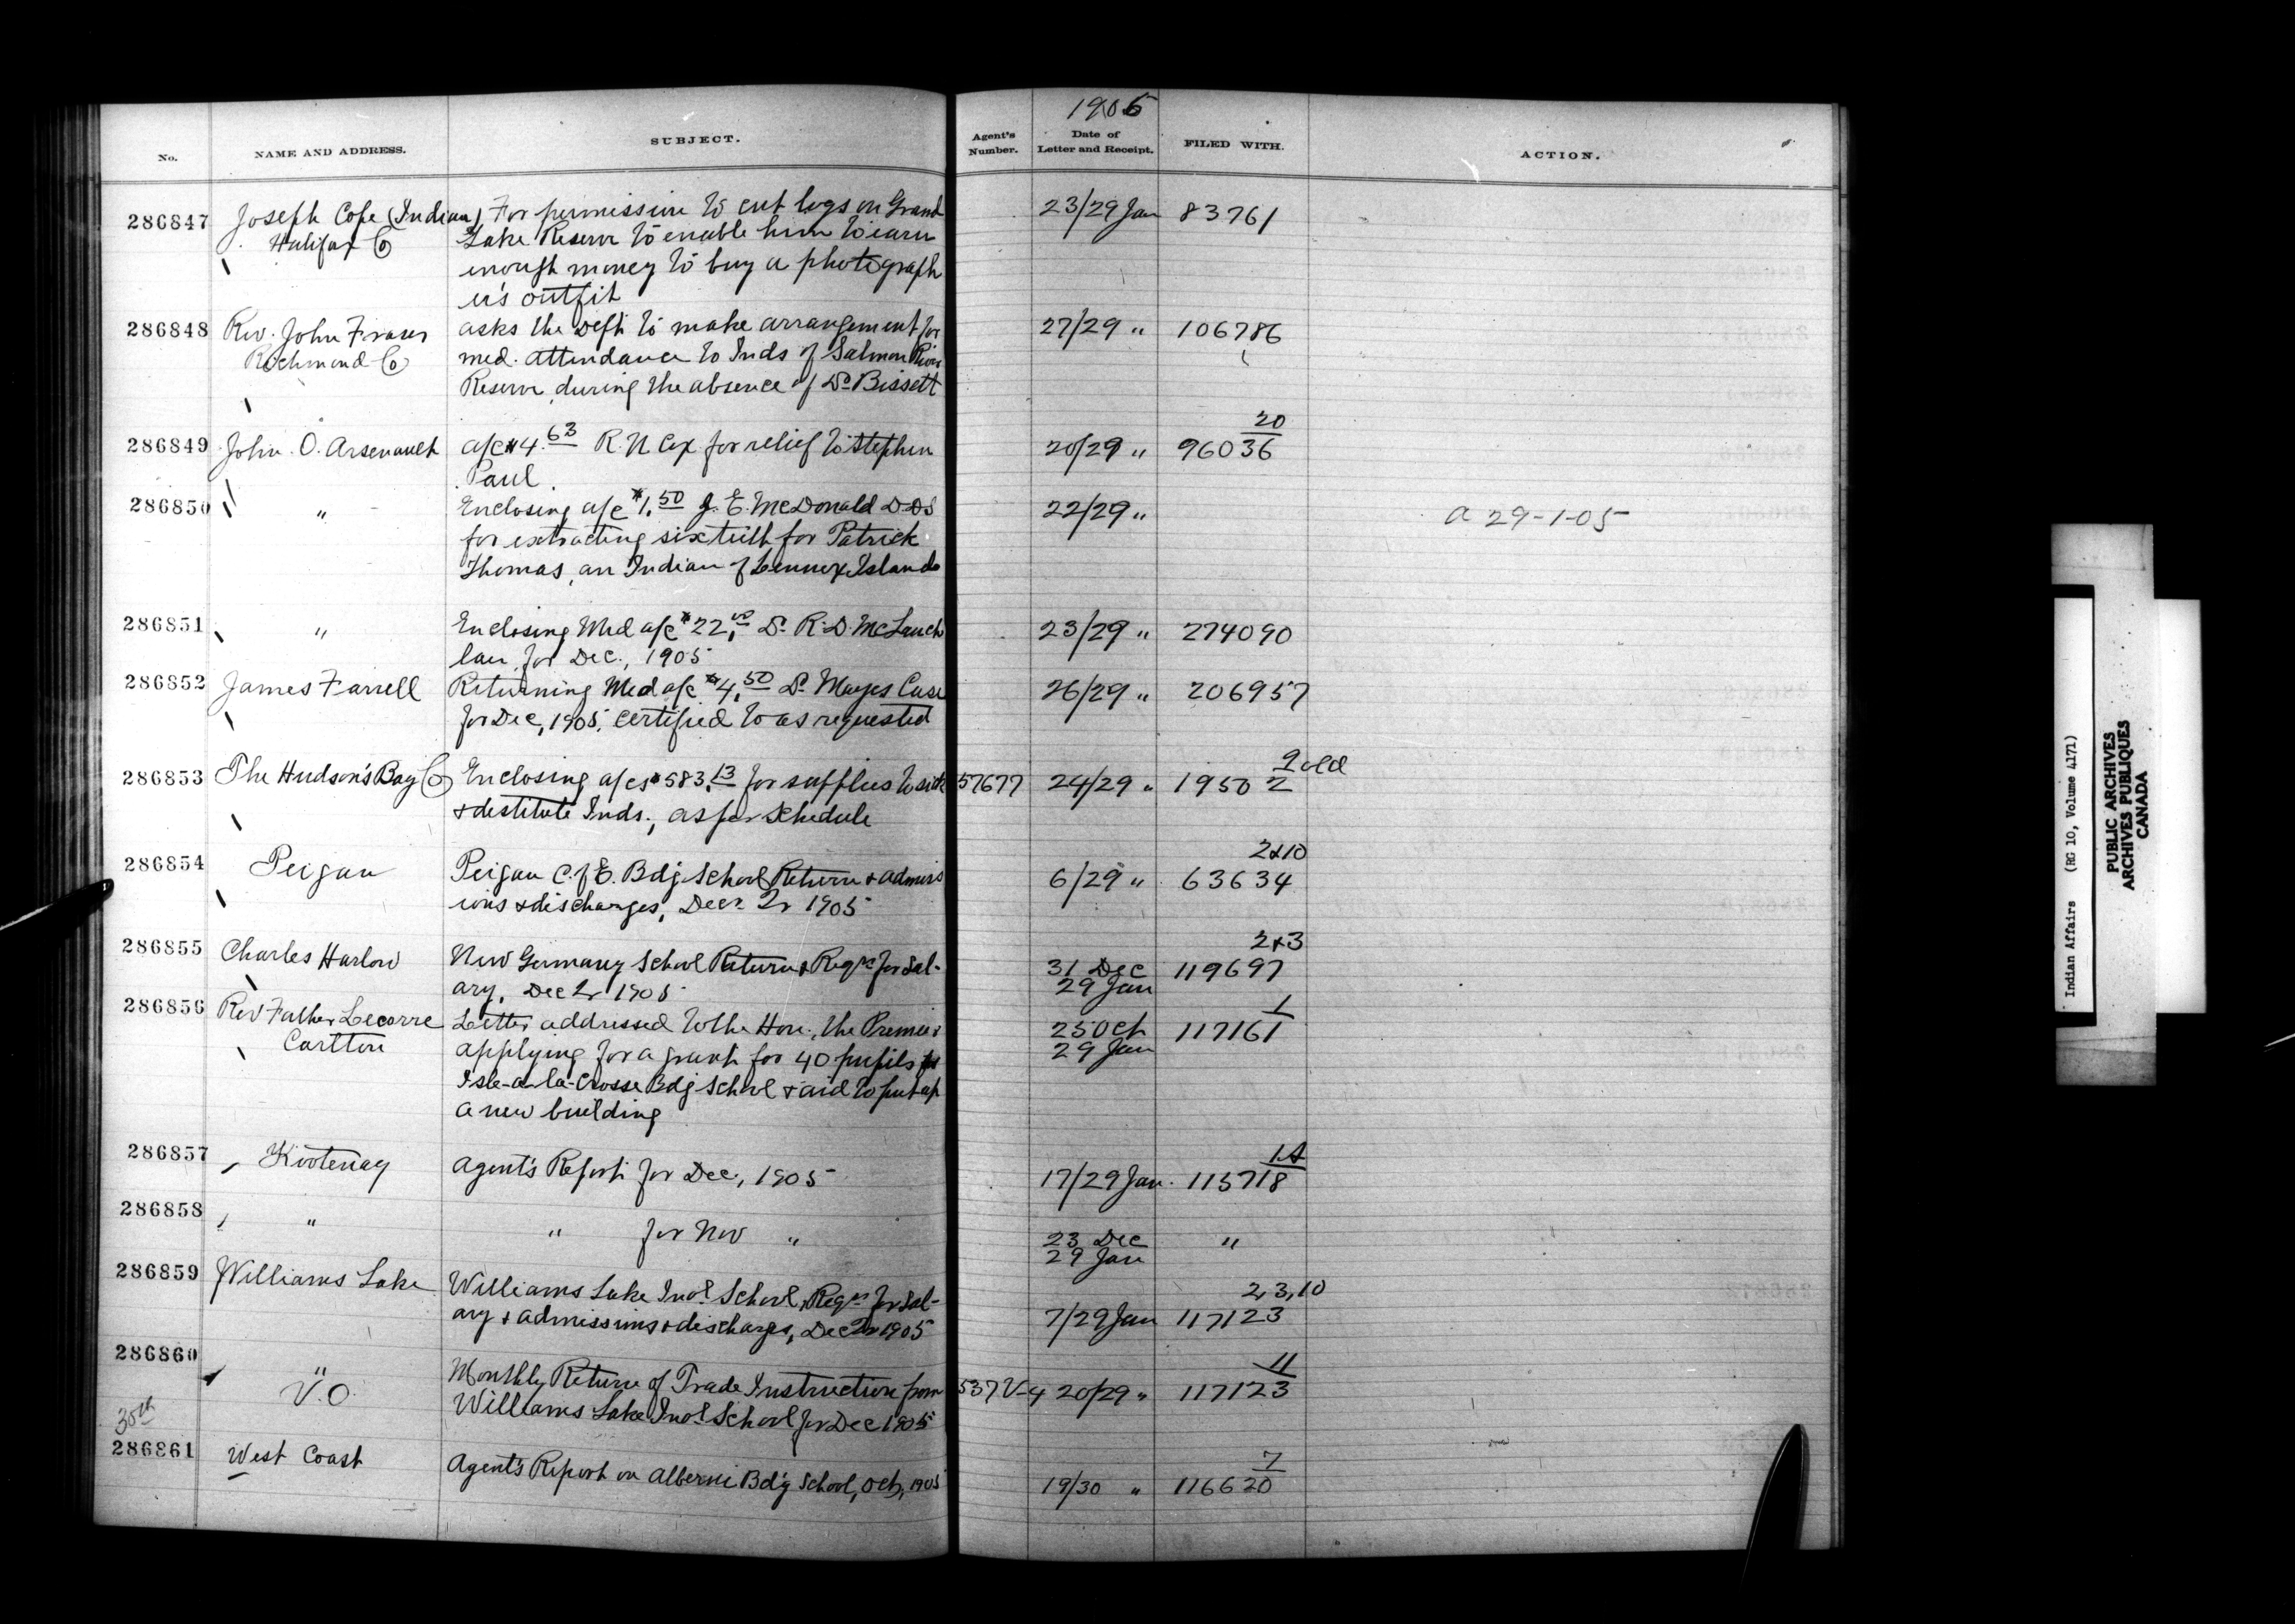 1906
No.
NAME AND ADDRESS.
SUBJECT.
Agent's Number.
Date of Letter and Receipt.
FILED WITH.
ACTION.
286847 Joseph Cope (Indian) For permission to cut logs on Grand 23/29 Jan 83761
Halifax Co Lake Reserve to enable him to earn
enough money to buy a photograph
er's outfit
286848 Rev. John Fraser asks the Dept to make arrangement for 27/29 " 106786
Richmond Co med. attendance to Inds of Salmon River
Reserve during the absence of Dr Bissett
20
286849 John O. Arsenault a/c $4.63 R. N Cox for relief to Stephen 20/29 " 96036
Paul
286850 " Enclosing a/c $1.50 J. E. McDonald D.D.S 22/29 " a 29-1-05
for extracting six teeth for Patrick
Thomas, an Indian of Lennox Island
286851 " Enclosing Med a/c $22.00 Dr R. D. McLauch 23/29 " 274090
lan for Dec., 1905
286852 James Farrell Returning Med a/c $4.50 Dr Mayes Case 26/29 " 206957
for Dec, 1905, certified to as requested
9 old
286853 The Hudson's Bay Co Enclosing a/cs $583.13 for supplies to sick 57677 24/29 " 19502
& destitute Inds., as per schedule
2&10
286854 Peigan Peigan C. of E. Bdg School Return & admiss 6/29 " 63634
ions & discharges, Decr Qr 1905
2&3
286855 Charles Harlow New Germany School Return & Reqn for Sal- 31 Dec 119697
ary, Dec Qr 1905 29 Jan
1
286856 Rev Father Lecorre Letter addressed to the Hon., the Premier 25 Oct 117161
Carlton applying for a grant for 40 pupils for 29 Jan
Isle-a-la-Crosse Bdg School & aid to put up
a new building
1A
286857 Kootenay Agent's Report for Dec., 1905 17/29 Jan. 115718
286858 " " for Nov " 23 Dec "
29 Jan
2,3,10
286859 Williams Lake Williams Lake Indl School, Reqn for Sal-
ary & admissions & discharges, Dec Qr 1905 7/29 Jan 117123
11
286860 " Monthly Return of Trade Instruction from 537 V-4 20/29 " 117123
V.O. Williams Lake Indl School for Dec 1905
30th
7
286861 West Coast Agent's Report on Alberni Bd'g School, Oct, 1905 19/30 " 116620
Indian Affairs (RG 10, Volume 4171)
PUBLIC ARCHIVES
ARCHIVES PUBLIQUES
CANADA